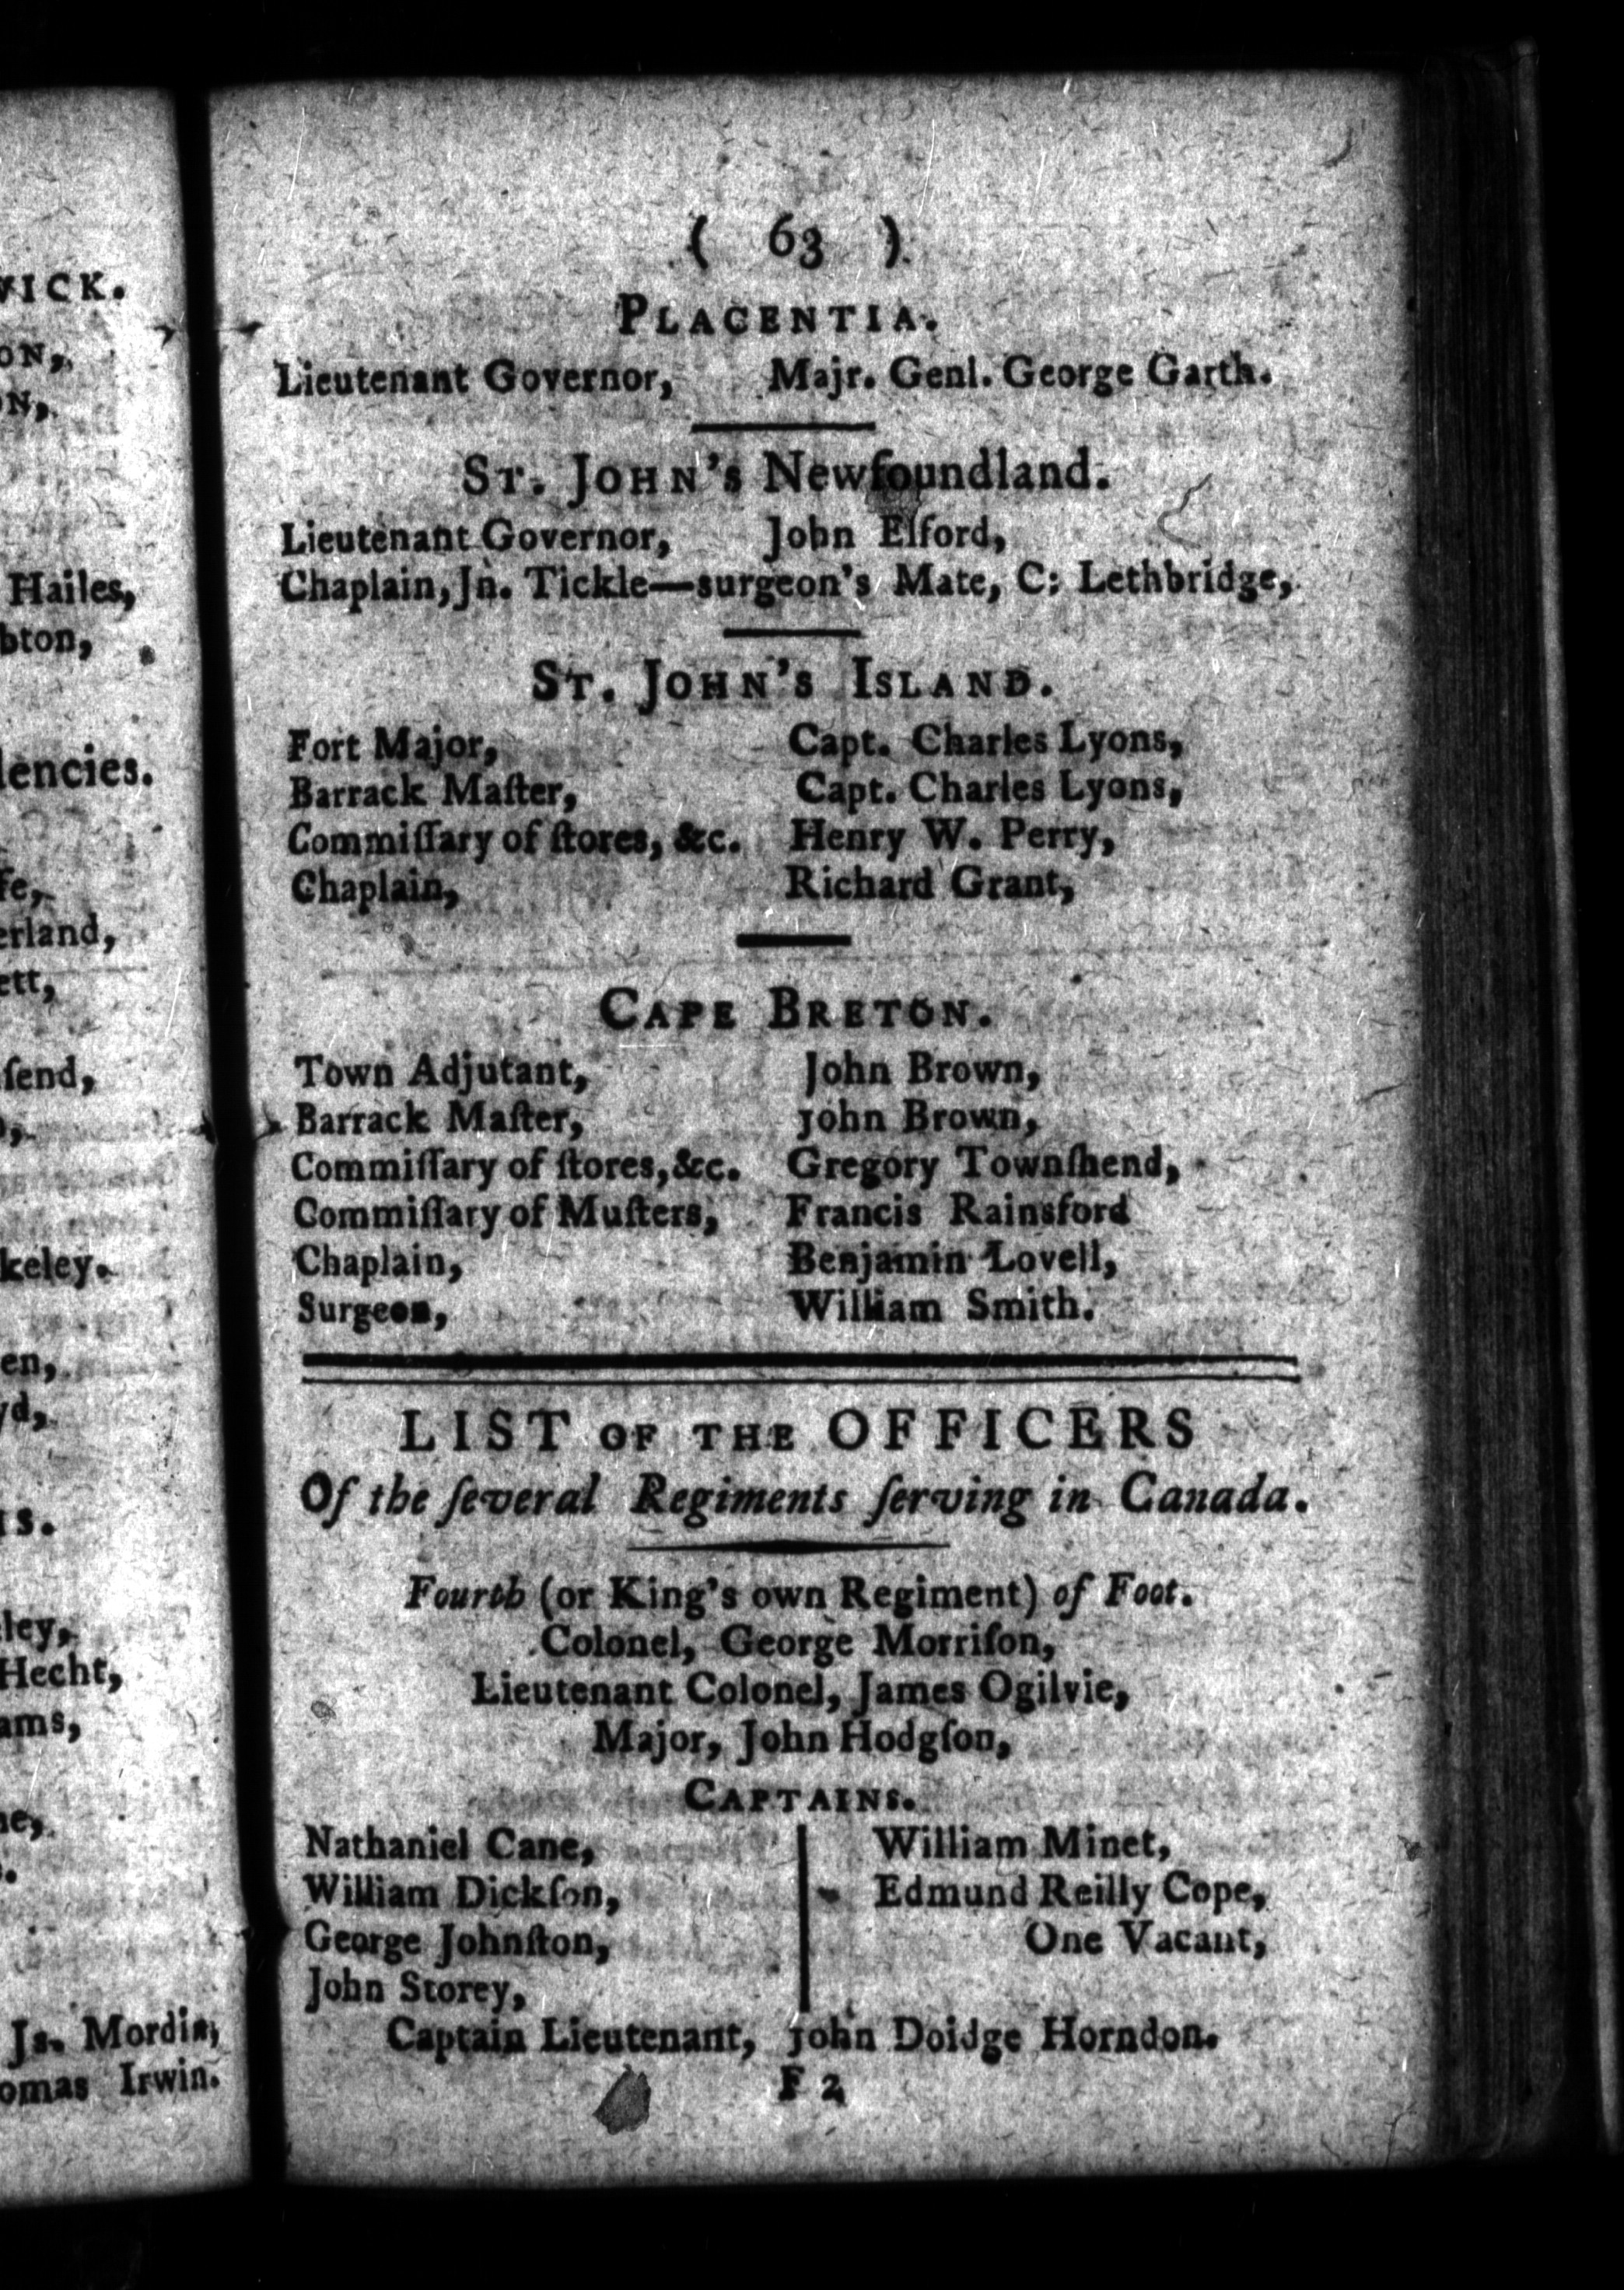 VICK.
ON,
ON,
Hailes,
bton,
dencies.
fe,
erland,
ett,
ſend,
keley.
en,
yd,
IS.
ley,
Hecht,
ams,
ne,
Js. Mordin,
omas Irwin.
( 63 )
PLACENTIA.
Lieutenant Governor, Majr. Genl. George Garth.
ST. JOHN's Newfoundland.
Lieutenant Governor, John Elford,
Chaplain, Jn. Tickle—surgeon's Mate, C: Lethbridge,
ST. JOHN's ISLAND.
Fort Major, Capt. Charles Lyons,
Barrack Maſter, Capt. Charles Lyons,
Commiſſary of ſtores, &c. Henry W. Perry,
Chaplain, Richard Grant,
CAPE BRETON.
Town Adjutant, John Brown,
Barrack Maſter, John Brown,
Commiſſary of ſtores, &c. Gregory Townſhend,
Commiſſary of Muſters, Francis Rainsford
Chaplain, Benjamin Lovell,
Surgeon, William Smith.
LIST OF THE OFFICERS
Of the ſeveral Regiments ſerving in Canada.
Fourth (or King's own Regiment) of Foot.
Colonel, George Morriſon,
Lieutenant Colonel, James Ogilvie,
Major, John Hodgſon,
CAPTAINS.
Nathaniel Cane, William Minet,
William Dickſon, Edmund Reilly Cope,
George Johnſton, One Vacant,
John Storey,
Captain Lieutenant, John Doidge Horndon.
F 2